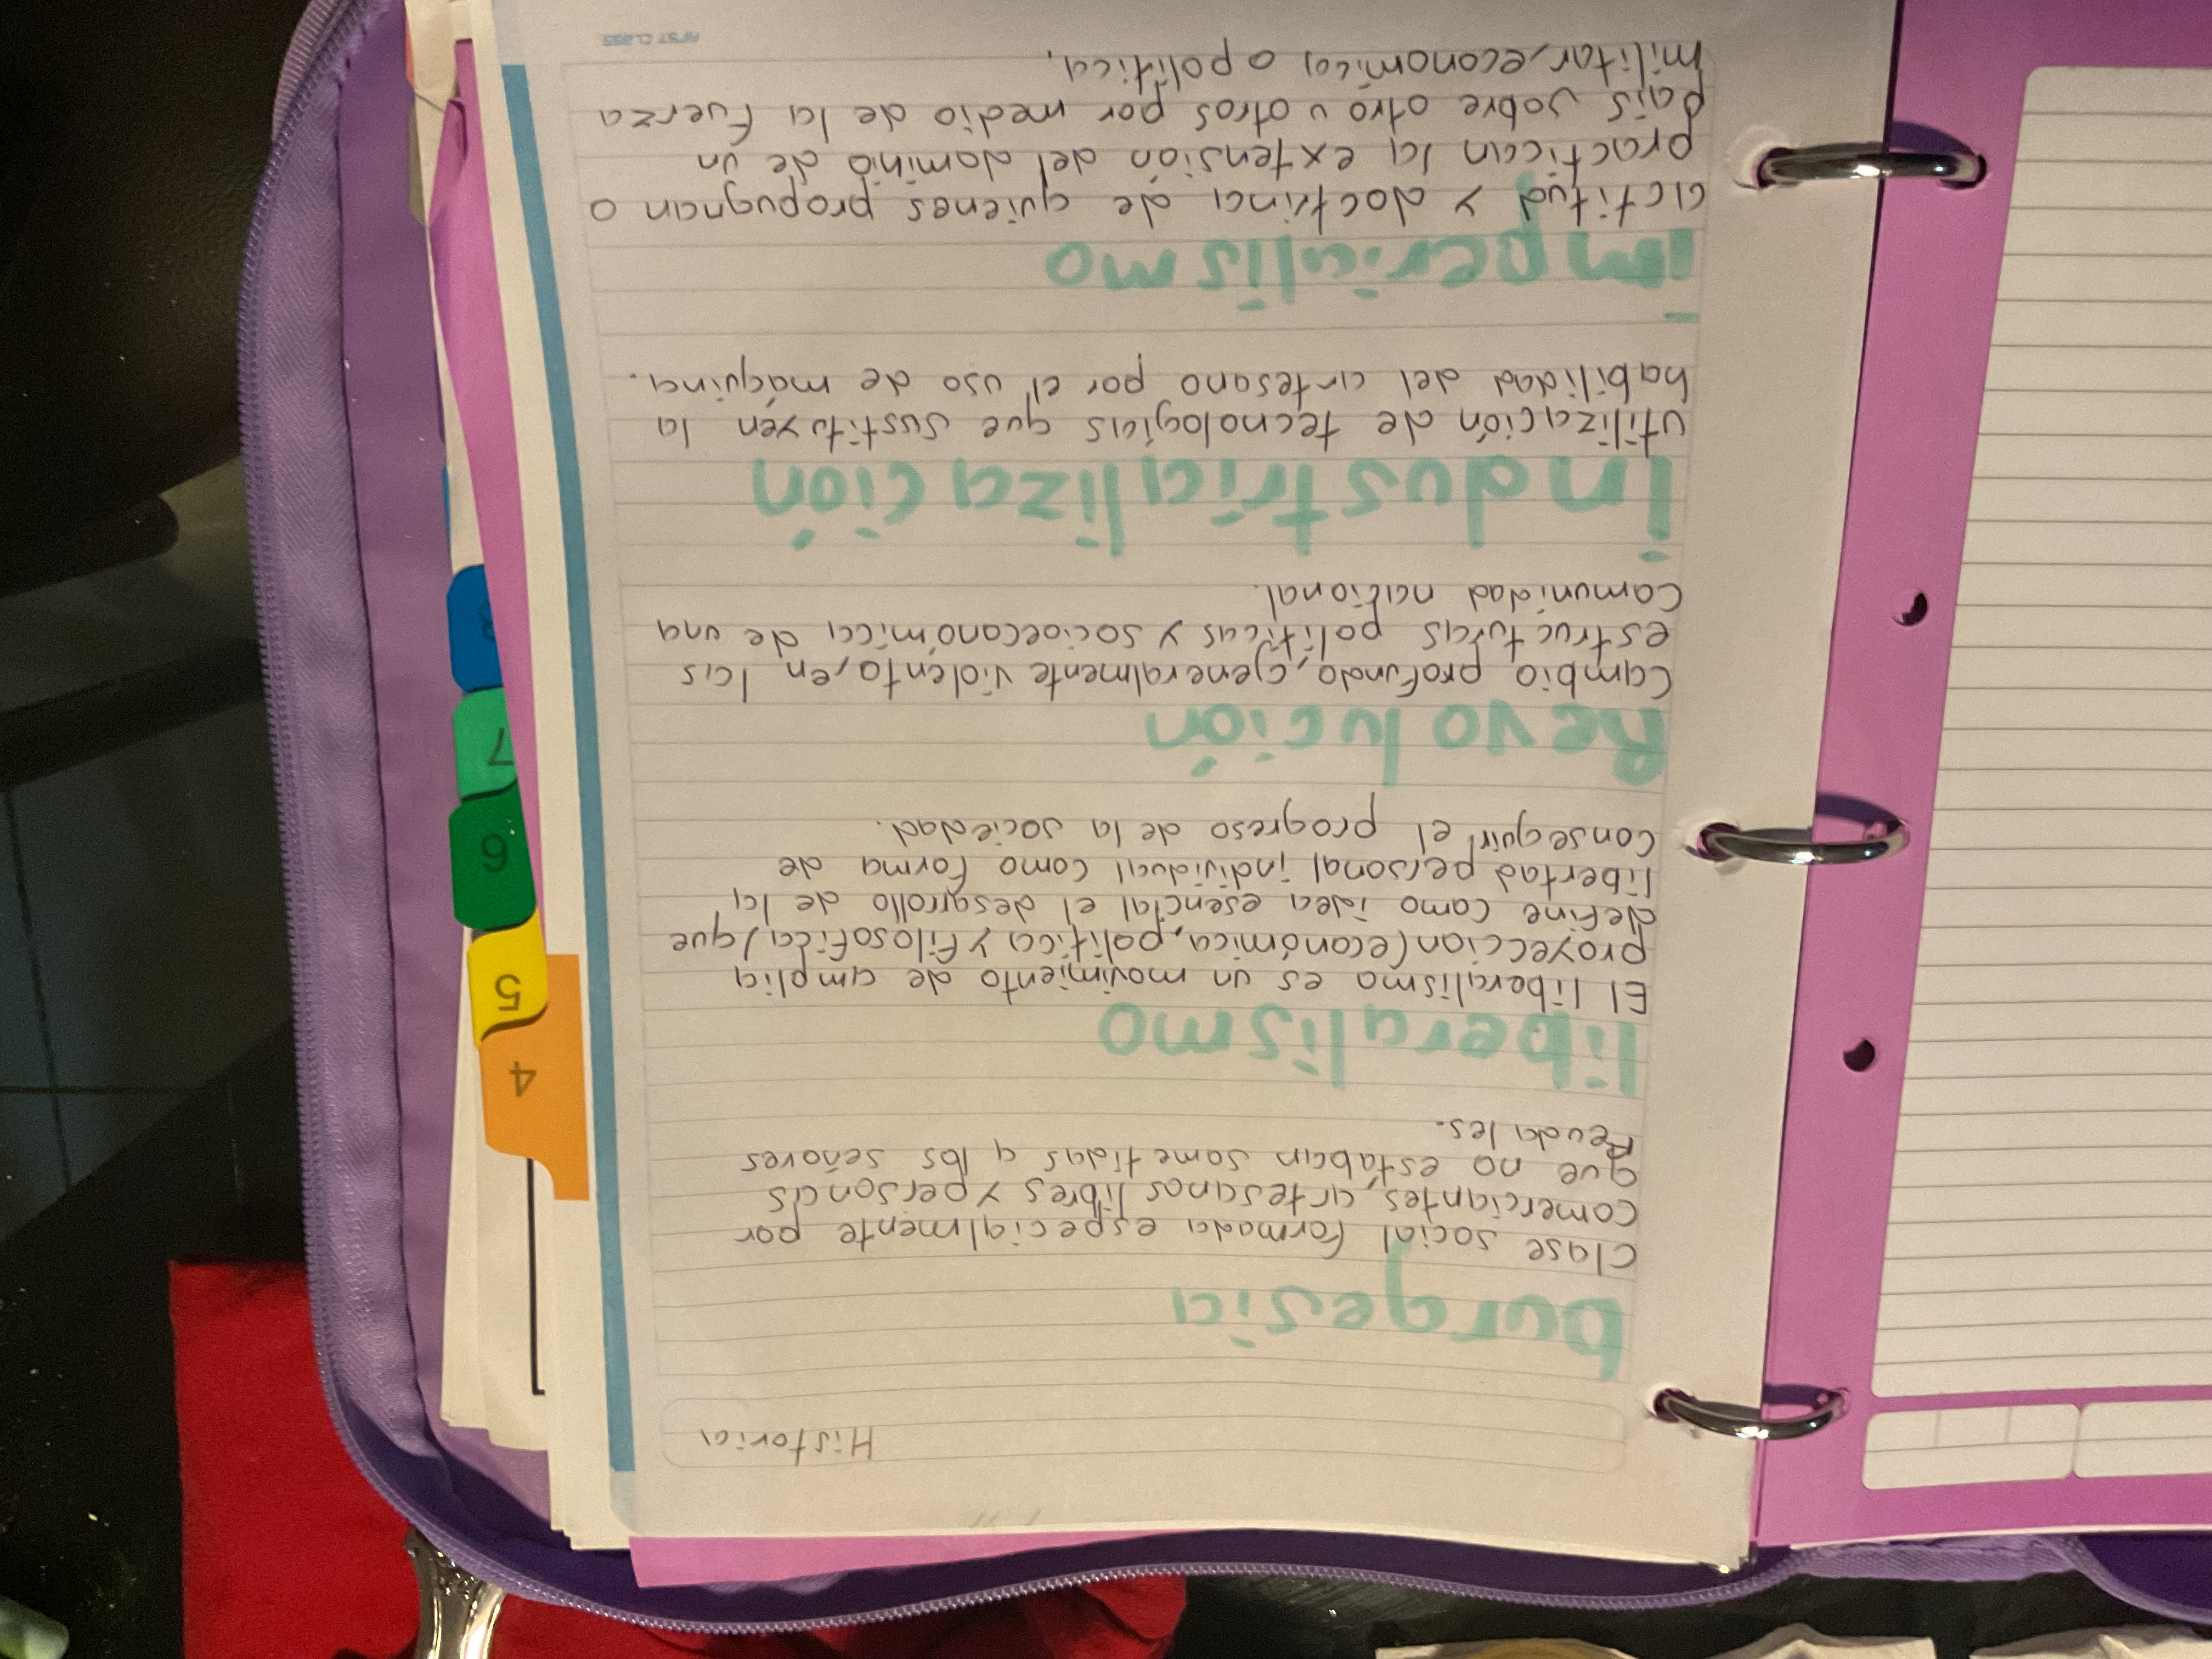 Historia
burgesia
clase social formada especialmente por
comerciantes, artesanos libres y personas
que no estaban sometidas a los señores
Feudales.
liberalismo
El liberalismo es un movimiento de amplia
proyeccion (económica, politica y filosofica) que
define como idea esencial el desarrollo de la
libertad personal individual como forma de
Conseguir el progreso de la sociedad.
Revolución
Cambio profundo, generalmente violento, en las
estructuras politicas y socioeconómica de una
Comunidad nacional.
Industrialización
utilización de tecnologias que sustituyen la
habilidad del artesano por el uso de máquina.
Imperialismo
actitud y doctrina de quienes propugnan o
practican la extensión del dominio de un
país sobre otro u otros por medio de la fuerza
militar, economica o politica.
FIRST CLASS
4
5
6
7
8